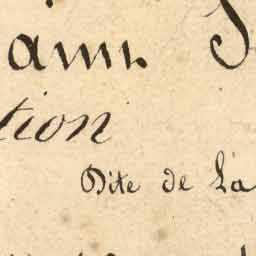 aim. S
tion
Dite de La